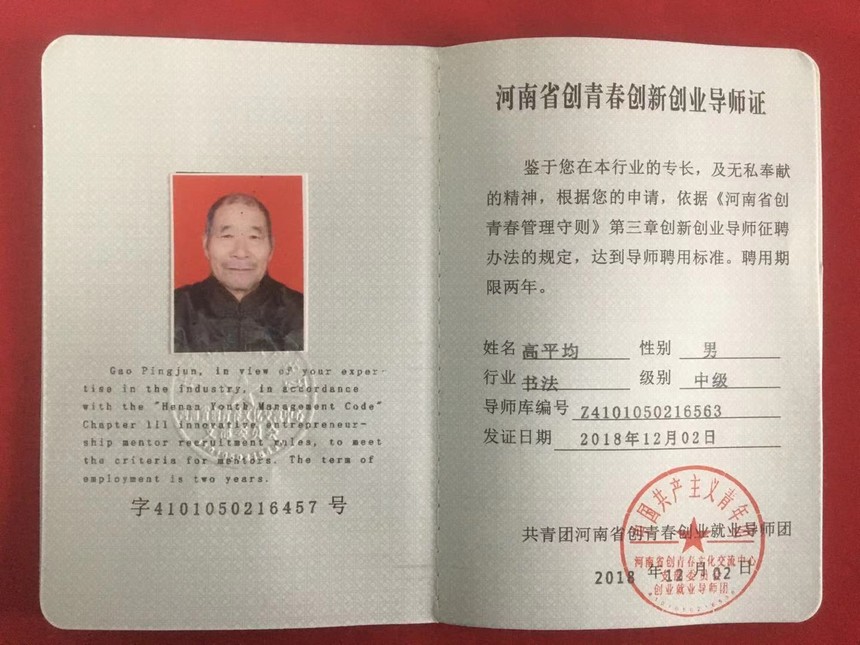 Gao Pingjun, in view of your exper-
tise in the industry, in accordance
with the "Henan Youth Management Code"
Chapter 111 innovative entrepreneur-
ship mentor recruitment rules, to meet
the criteria for mentors. The term of
employment is two years.
字4101050216457 号
河南省创青春创新创业导师证
鉴于您在本行业的专长，及无私奉献
的精神，根据您的申请，依据《河南省创
青春管理守则》第三章创新创业导师征聘
办法的规定，达到导师聘用标准。聘用期
限两年。
姓名 高平均 性别 男
行业 书法 级别 中级
导师库编号 Z4101050216563
发证日期 2018年12月02日
共青团河南省创青春创业就业导师团
2018 年12月02日
中国共产主义青年团
河南省创青春文化交流中心
创业就业导师团